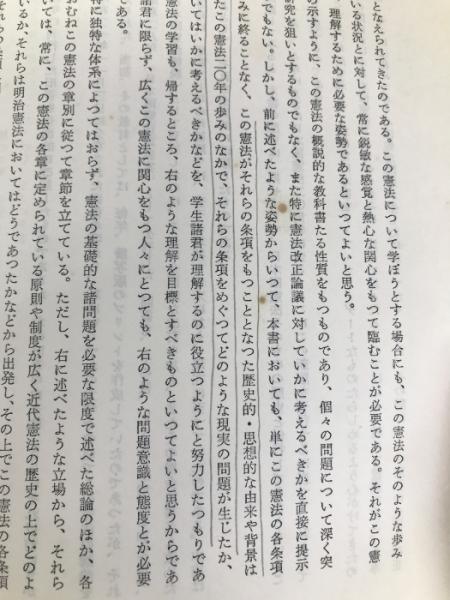 となえられてきたのである。この憲法について学ぼうとする場合にも、この憲法のそのような歩み
いる状況とに対して、常に鋭敏な感覚と熱心な関心をもつて臨むことが必要である。それがこの憲
理解するために必要な姿勢であるといつてよいと思う。
の示すように、この憲法の概説的な教科書たる性質をもつものであり、個々の問題について深く突
研究を狙いとするものでもなく、また特に憲法改正論議に対していかに考えるべきかを直接に提示
でもない。しかし、前に述べたような姿勢からいつて、本書においても、単にこの憲法の各条項
みに終ることなく、この憲法がそれらの条項をもつこととなつた歴史的・思想的な由来や背景は
たこの憲法二〇年の歩みのなかで、それらの条項をめぐつてどのような現実の問題が生じたか、
いてはいかに考えるべきかなどを、学生諸君が理解するのに役立つようにと努力したつもりであ
憲法の学習も、帰するところ、右のような理解を目標とすべきものといつてよいと思うからであ
諸君に限らず、広くこの憲法に関心をもつ人々にとつても、右のような問題意識と態度とが必要
である。
特に独特な体系によつてはおらず、憲法の基礎的な諸問題を必要な限度で述べた総論のほか、各
おむねこの憲法の章別に従つて章節を立てている。ただし、右に述べたような立場から、それら
いては、常に、この憲法の各章に定められている原則や制度が広く近代憲法の歴史の上でどのよ
いるか、それらは明治憲法においてはどうであつたかなどから出発し、その上でこの憲法の各条項